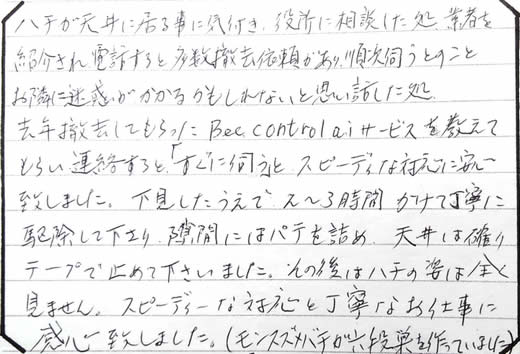 ハチが天井に居る事に気付き、役所に相談した処、業者を
紹介され、電話すると多数撤去依頼があり、順次伺うとのこと
お隣に迷惑がかかるかもしれないと思い話した処、
去年撤去してもらった Bee.control aiサービスを教えて
もらい連絡すると、「すぐに伺う」と スピーディな対応に安心
致しました。下見したうえで 2〜3時間 かけて丁寧に
駆除して下さり 隙間にはパテを詰め、天井は確り
テープで止めて下さいました。その後はハチの姿は全く
見ません。スピーディーな対応と丁寧なお仕事に
感心致しました。(モンスズメバチが六段巣を作っていました)